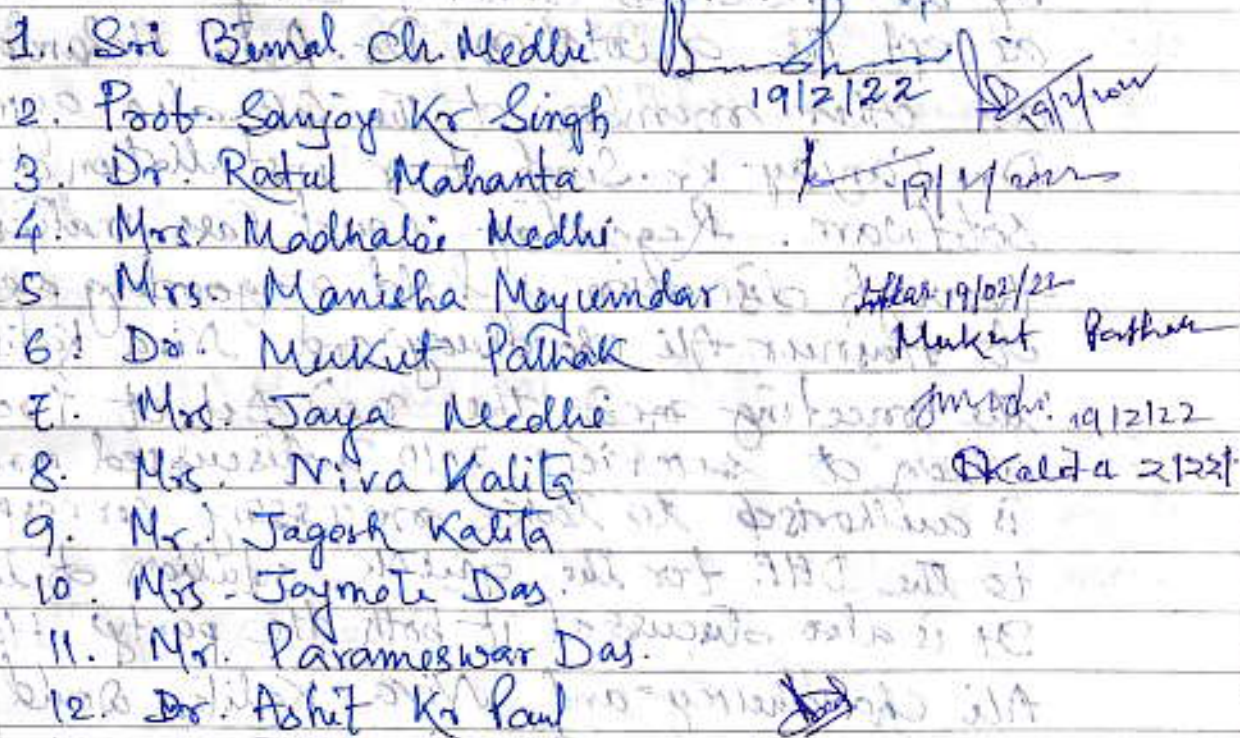 1. Sri Bimal Ch. Medhi
19/2/22
2. Prof. Sanjoy Kr Singh 19/2/2022
3. Dr. Ratul Mahanta
4. Mrs. Madhaloi Medhi
5 Mrs. Manisha Moyumdar 19/02/22
6. Dr. Mukut Pathak Mukut Pathak
7. Mrs. Jaya Medhi 19/2/22
8. Mrs. Niva Kalita Kalita 2/22
9. Mr. Jagosh Kalita
10. Mrs. Joymoti Das.
11. Mr. Parameswar Das.
12. Dr. Ashit Kr Paul